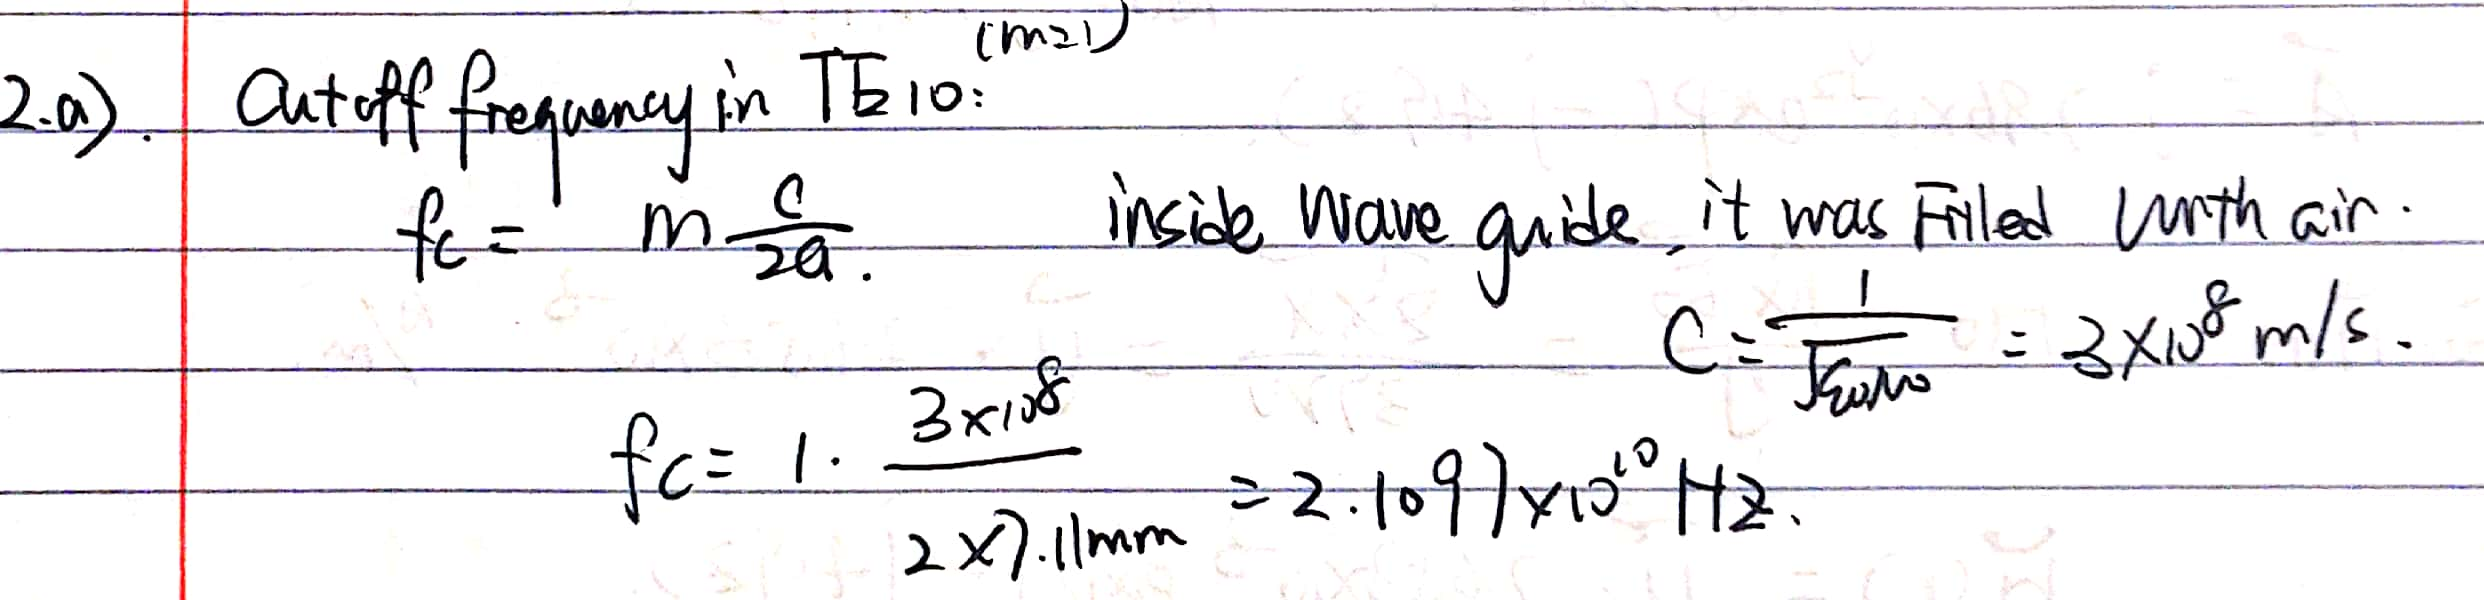 (m=1)
2.a). Cutoff frequency in TE10:
fc = m c/2a. inside wave guide, it was Filled with air.
C = 1/√ε0μ0 = 3×10^8 m/s.
fc = 1 · 3×10^8 / 2×7.11mm = 2.1097×10^10 Hz.